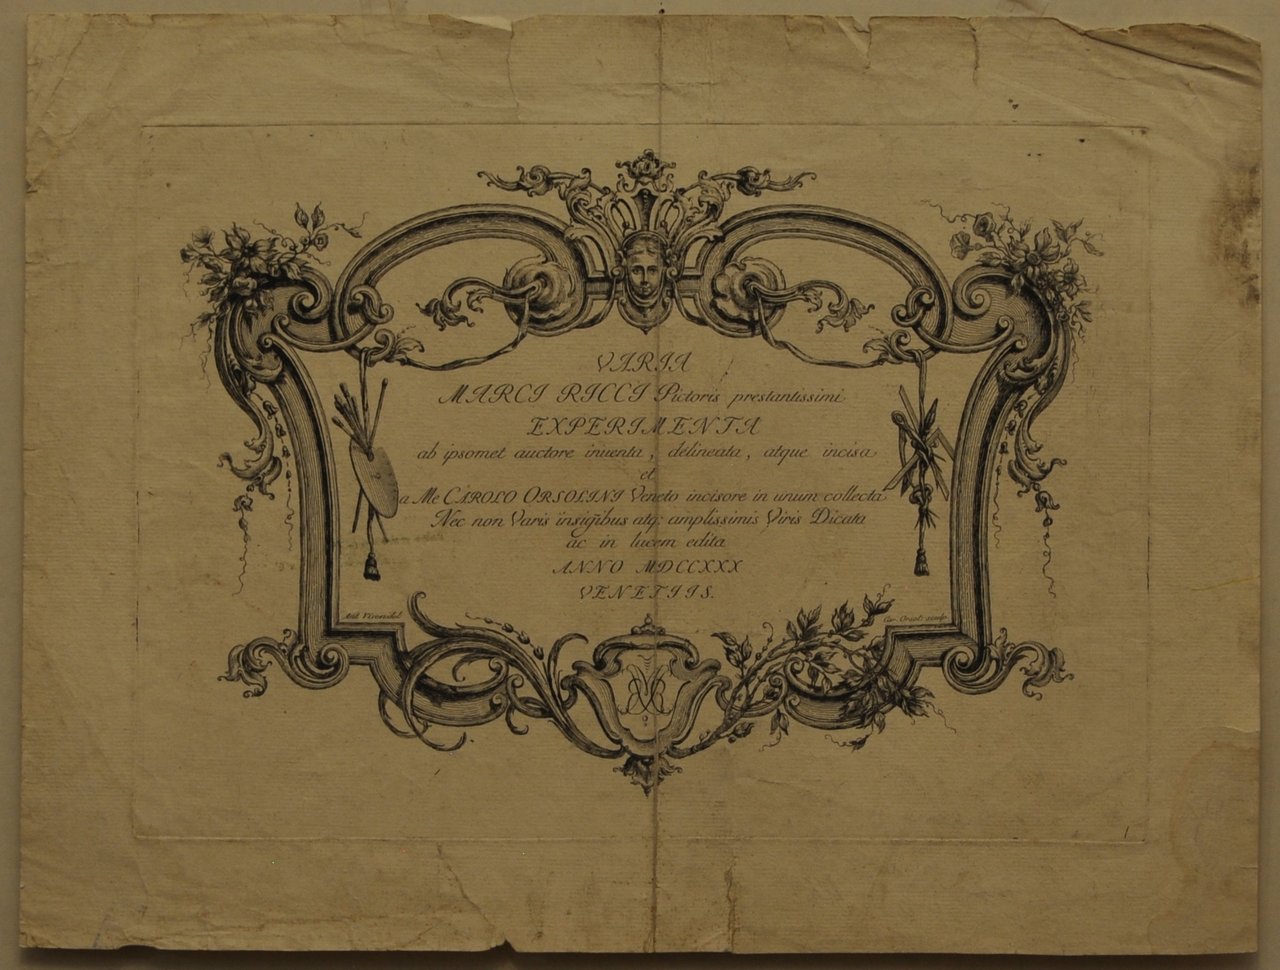 VARIA
MARCI RICCI Pictoris prestantissimi
EXPERIMENTA
ab ipsomet auctore inuenta, delineata, atque incisa
et
a Me CAROLO ORSOLINI Veneto incisore in unum collecta
Nec non Varis insigibus atq; amplissimis Viris Dicata
ac in lucem edita
ANNO MDCCXXX
VENETIIS.
Car. Orsoli. sculp.